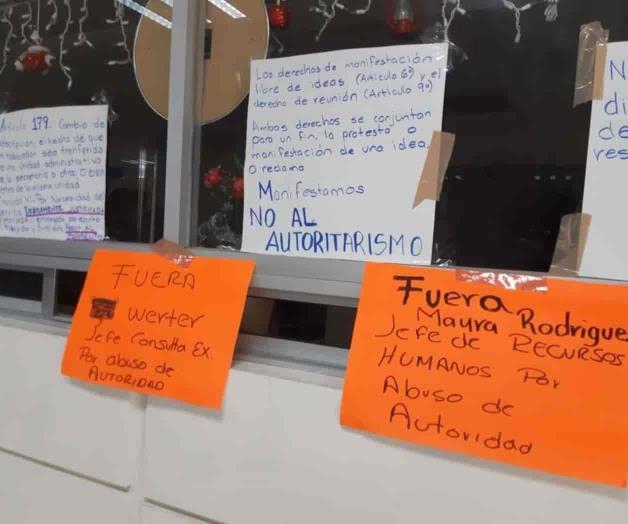 Artículo 179. Cambio de
adscripción, el hecho de que
un trabajador sea transferido
de una unidad administrativa
de la secretaría a otra; o bien
dentro de la misma unidad
Por Necesidad del
DEBIDAMENTE JUSTIFICADA
Los derechos de manifestación
libre de ideas (Artículo 6º) y el
derecho de reunión (Artículo 9º)
Ambos derechos se conjuntan
para un fin, la protesta o
manifestación de una idea,
o reclamo
Manifestamos
NO AL
AUTORITARISMO
N
di
de
res
FUERA
Werter
Jefe Consulta Ex.
Por abuso de
AUTORIDAD
Fuera
Mayra Rodrigue
Jefe de RECURSOS
HUMANOS Por
Abuso de
Autoridad